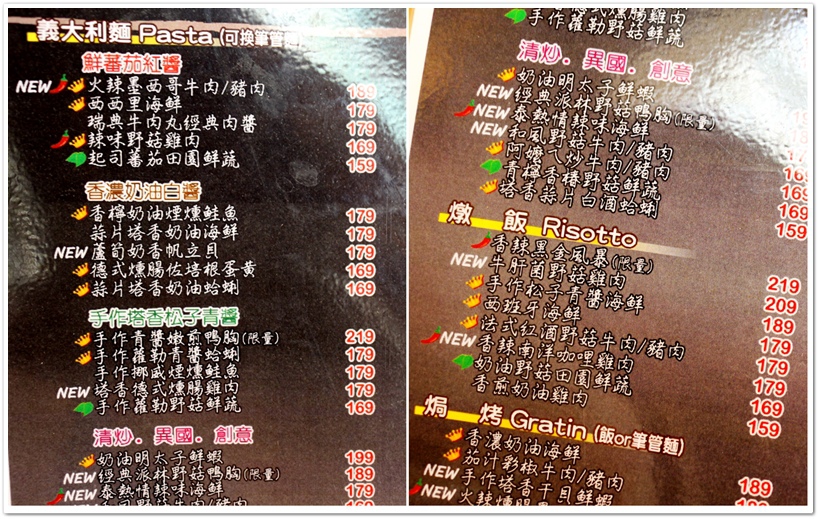 義大利麵 Pasta (可換筆管麵)
鮮蕃茄紅醬
NEW 火辣墨西哥牛肉/豬肉 189
西西里海鮮 179
瑞典牛肉丸經典肉醬 179
辣味野菇雞肉 169
起司蕃茄田園鮮蔬 159
香濃奶油白醬
香檸奶油煙燻鮭魚 179
蒜片塔香奶油海鮮 179
NEW 蘆筍奶香帆立貝 179
德式燻腸佐培根蛋黃 169
蒜片塔香奶油蛤蜊 169
手作塔香松子青醬
手作青醬嫩煎鴨胸(限量) 219
手作蘿勒青醬蛤蜊 179
手作挪威煙燻鮭魚 179
NEW 塔香德式燻腸雞肉 179
手作蘿勒野菇鮮蔬 169
清炒．異國．創意
奶油明太子鮮蝦 199
NEW 經典派林野菇鴨胸(限量) 189
NEW 泰熱情辣味海鮮 179
德式燻腸雞肉
手作蘿勒野菇鮮蔬
清炒．異國．創意
奶油明太子鮮蝦
NEW 經典派林野菇鴨胸(限量)
NEW 泰熱情辣味海鮮
NEW 和風野菇牛肉/豬肉
阿嬤ㄟ炒牛肉/豬肉
青檸香椿野菇鮮蔬 169
塔香蒜片白酒蛤蜊 169
159
燉 飯 Risotto
香辣黑金風暴(限量)
NEW 牛肝菌野菇雞肉 219
手作松子青醬海鮮 209
西班牙海鮮 189
法式紅酒野菇牛肉/豬肉 179
NEW 香辣南洋咖哩雞肉 179
奶油野菇田園鮮蔬 169
香煎奶油雞肉 159
焗 烤 Gratin (飯or筆管麵)
香濃奶油海鮮
茄汁彩椒牛肉/豬肉
NEW 手作塔香干貝鮮蝦 189
NEW